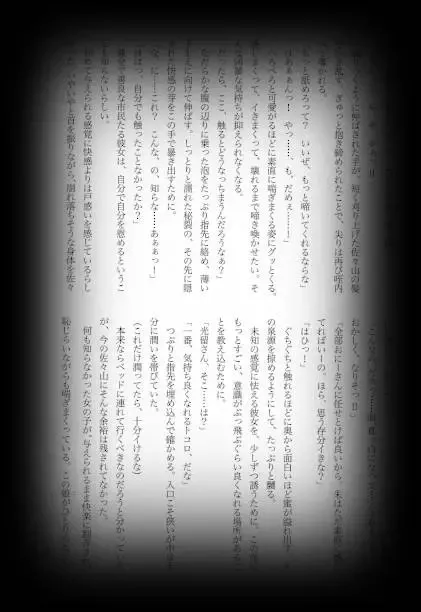 くように伸ばされた手が、短く刈り上げた佐々山の髪
乱す。ぎゅっと抱き締められたことで、尖りは再び咥内
導かれる。
もっと舐めろって？　いいぜ、もっと啼いてくれるならな」
ぁぁんっ！　やっ……、も、だめぇ………！」
っと可愛がるほどに素直に喘ぎまくる姿にグッとくる。
しまくって、イきまくって、壊れるまで啼き喚かせたい。そ
な凶暴な気持ちが抑えられなくなる。
だ、たら、ここ、触るとどうなっちまうんだろうなぁ？」
らかな腹の辺りに乗った泡をたっぷり指先に絡め、薄い
えに向けて伸ばす。しっとりと濡れた秘裂の、その先に隠
快感の芽をこの手で暴き出すために。
や、に……これ？　こんな、の、知らな……あぁぁっ！」
はっ、自分でも触ったことなかったか？」
全で善良な市民たる彼女は、自分で自分を慰めるというこ
も知らないらしい。
めて与えられる感覚に快感よりは戸惑いを感じているらし
いやいやと首を振りながら、崩れ落ちそうな身体を佐々
おかしく、なりそっ！」
「全部おにーさんに任せとけば良いから、朱はただ素直に感
てればいーの。ほら、思う存分イきな？」
「はひっ！」
ぐちぐちと触れるほどに奥から面白いほど蜜が溢れ出す
の泉源を掠めるようにして、たっぷりと嬲る。
未知の感覚に怯える彼女を、少しずつ誘うために。この
もっとすごい、意識がぶっ飛ぶぐらい良くなれる場所がある
とを教え込むために。
「光留さん、そこ……は？」
「一番、気持ち良くなれるトコロ、だな」
つぷりと指先を埋め込んで確かめる。入口こそ狭いが中は
分に潤いを帯びていた。
（これだけ潤ってたら、十分イけるな）
本来ならベッドに連れて行くべきなのだろうと分かってい
が、今の佐々山にそんな余裕は残されてなかった。
何も知らなかった女の子が、与えられるまま快楽に
恥じらいながらも喘ぎまくっている。この娘が